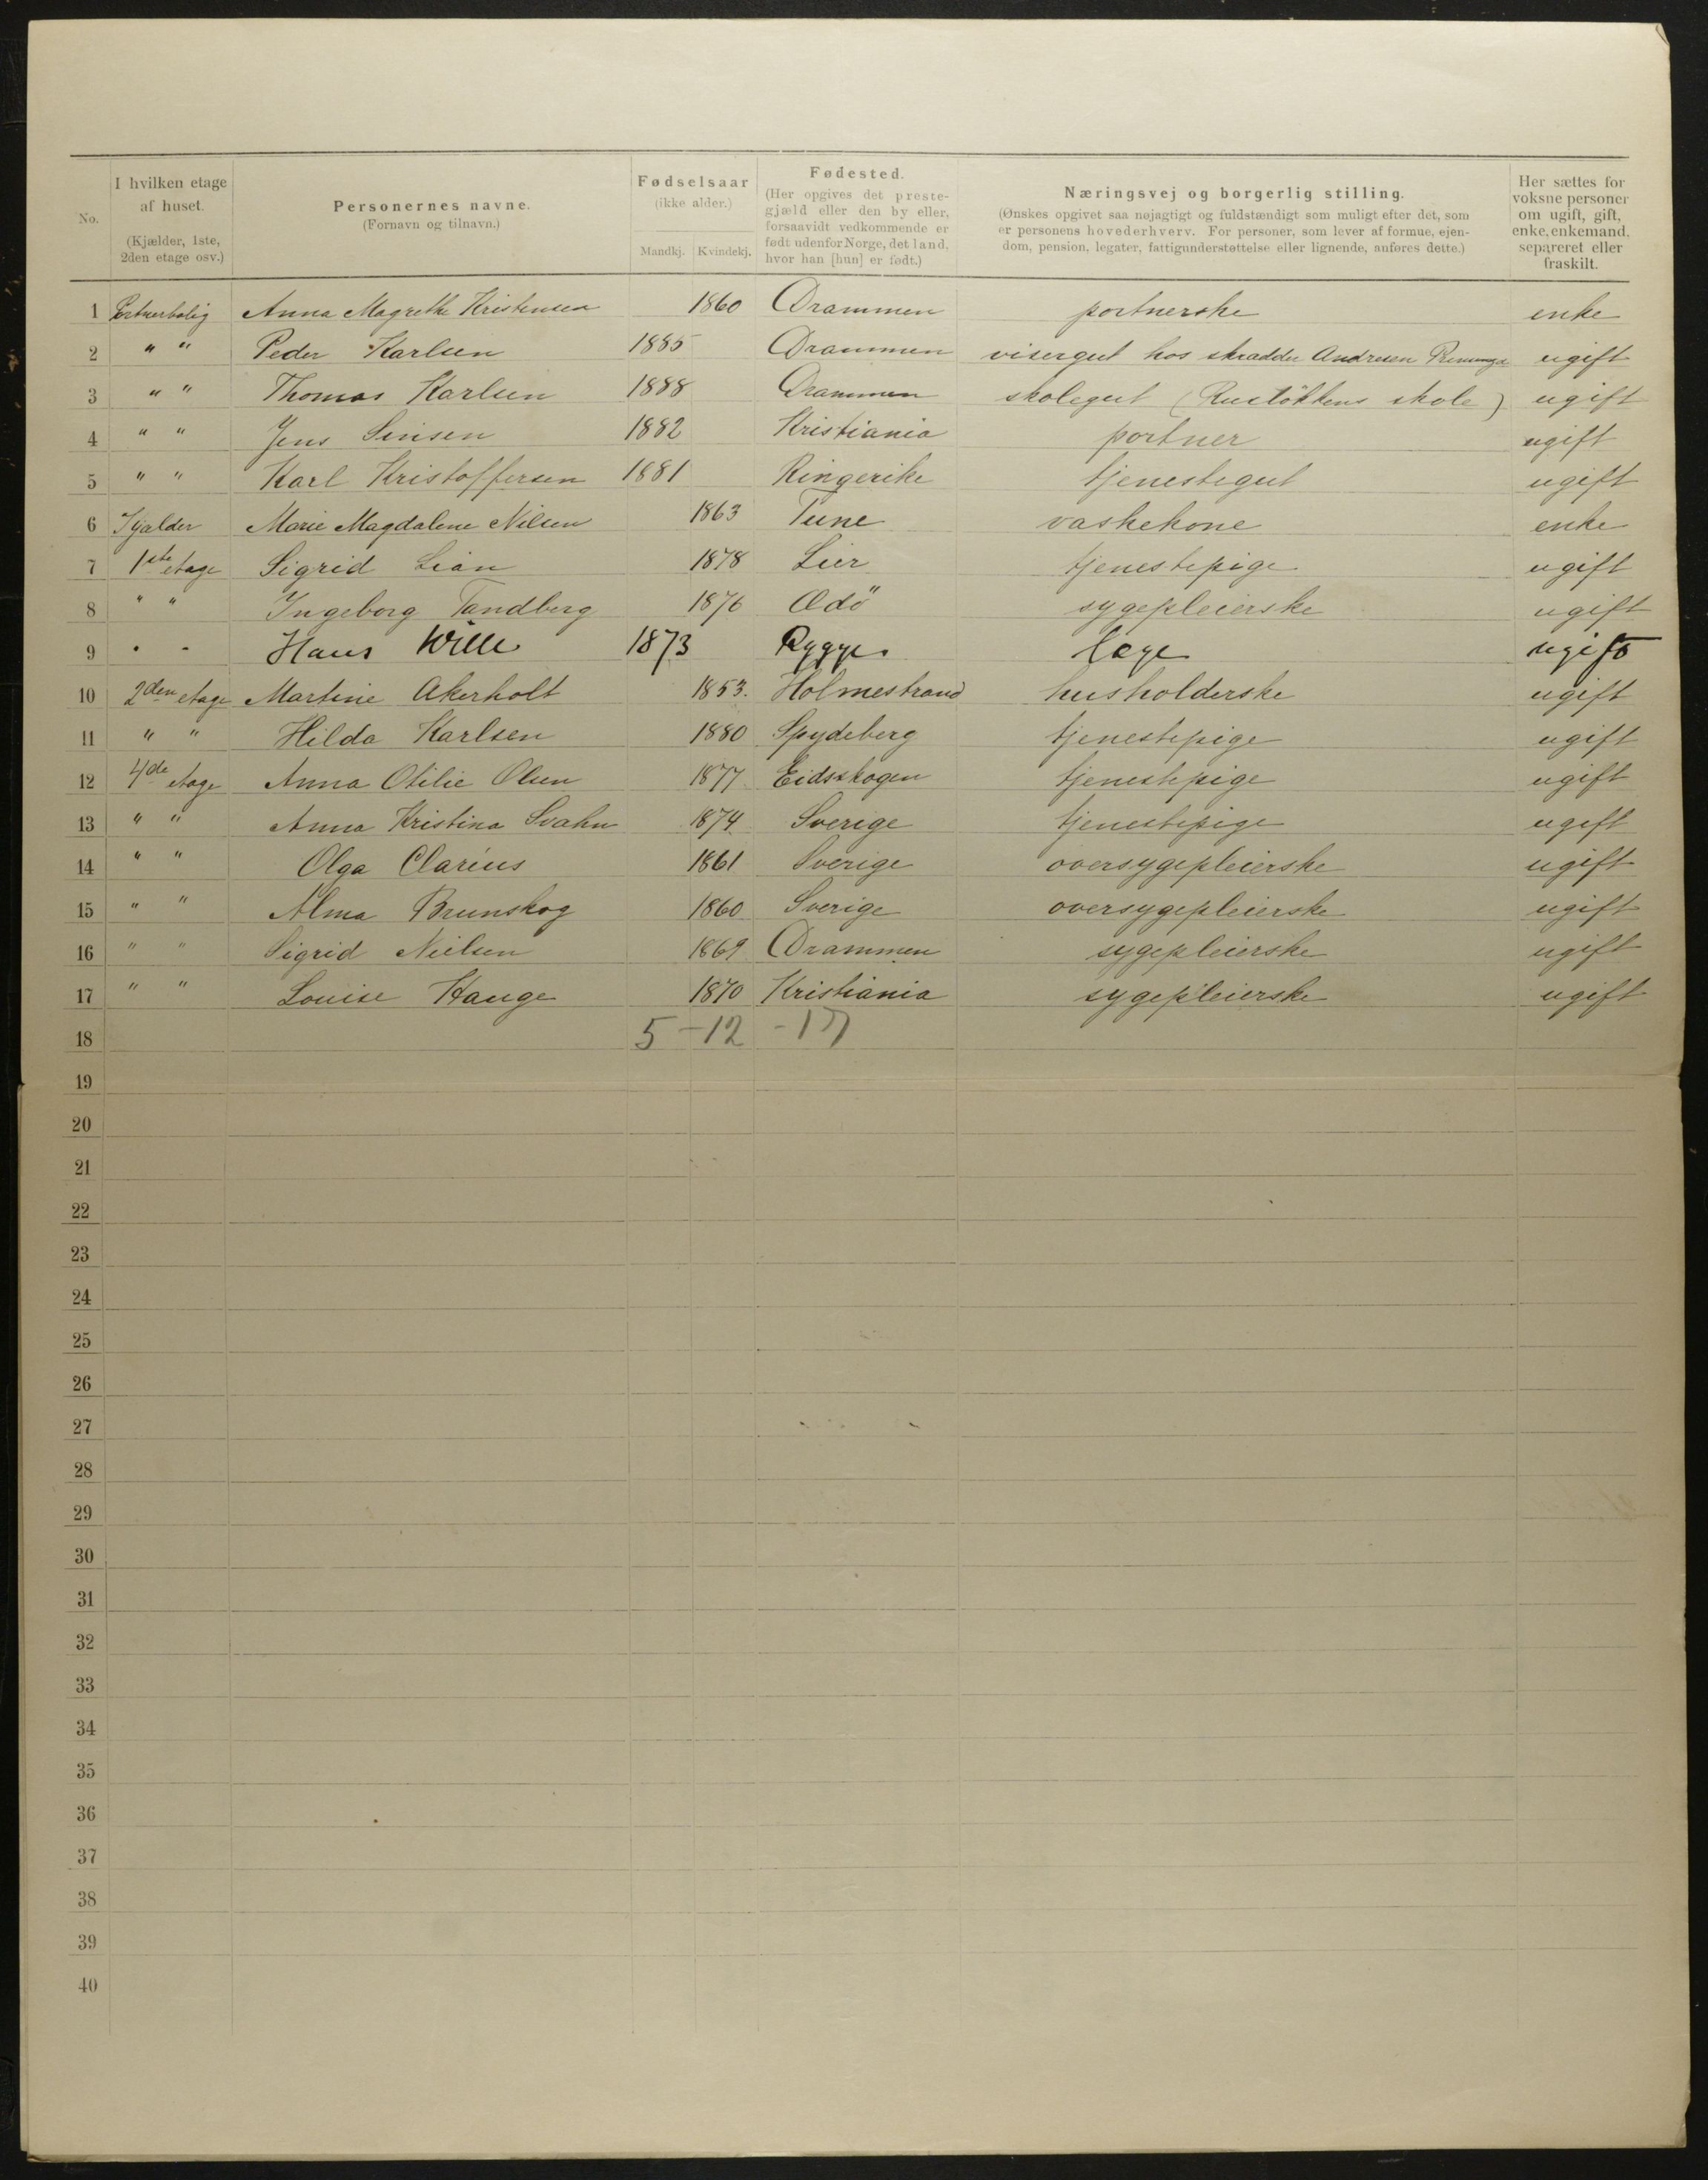 No.
I hvilken etage
af huset.
(Kjælder, 1ste,
2den etage osv.)
Personernes navne.
(Fornavn og tilnavn.)
Fødselsaar
(ikke alder.)
Mandkj. Kvindekj.
Fødested.
(Her opgives det preste-
gjæld eller den by eller,
forsaavidt vedkommende er
født udenfor Norge, det land,
hvor han [hun] er født.)
Næringsvej og borgerlig stilling.
(Ønskes opgivet saa nøjagtigt og fuldstændigt som muligt efter det, som
er personens hovederhverv. For personer, som lever af formue, ejen-
dom, pension, legater, fattigunderstøttelse eller lignende, anføres dette.)
Her sættes for
voksne personer
om ugift, gift,
enke, enkemand,
separeret eller
fraskilt.
1 Portnerbolig Anna Magrethe Kristensen 1860 Drammen portnerske enke
2 " " Peder Karlsen 1885 Drammen visergut hos skradder Andresen ugift
3 " " Thomas Karlsen 1888 Drammen skolegut (Rusløkkens skole) ugift
4 " " Jens Sinsen 1882 Kristiania portner ugift
5 " " Karl Kristoffersen 1881 Ringerike tjenestegut ugift
6 Kjalder Marie Magdalene Nilsen 1863 Tune vaskekone enke
7 1ste etage Sigrid Lian 1878 Lier tjenestepige ugift
8 " " Ingeborg Tandberg 1876 sygepleierske ugift
9 " " Hans Wille 1873 Rygge læge ugift
10 2den etage Martine Akerholt 1853. Holmestrand husholderske ugift
11 " " Hilda Karlsen 1880 Spydeberg tjenestepige ugift
12 4de etage Anna Otilie Olsen 1877 Eidsskogen tjenestepige ugift
13 " " Anna Kristina Svahn 1874 Sverige tjenestepige ugift
14 " " Olga Claréus 1861 Sverige oversygepleierske ugift
15 " " Alma Brunskog 1860 Sverige oversygepleierske ugift
16 " " Sigrid Nielsen 1869 Drammen sygepleierske ugift
17 " " Louise Hauge 1870 Kristiania sygepleierske ugift
18 5 - 12 - 17
19
20
21
22
23
24
25
26
27
28
29
30
31
32
33
34
35
36
37
38
39
40